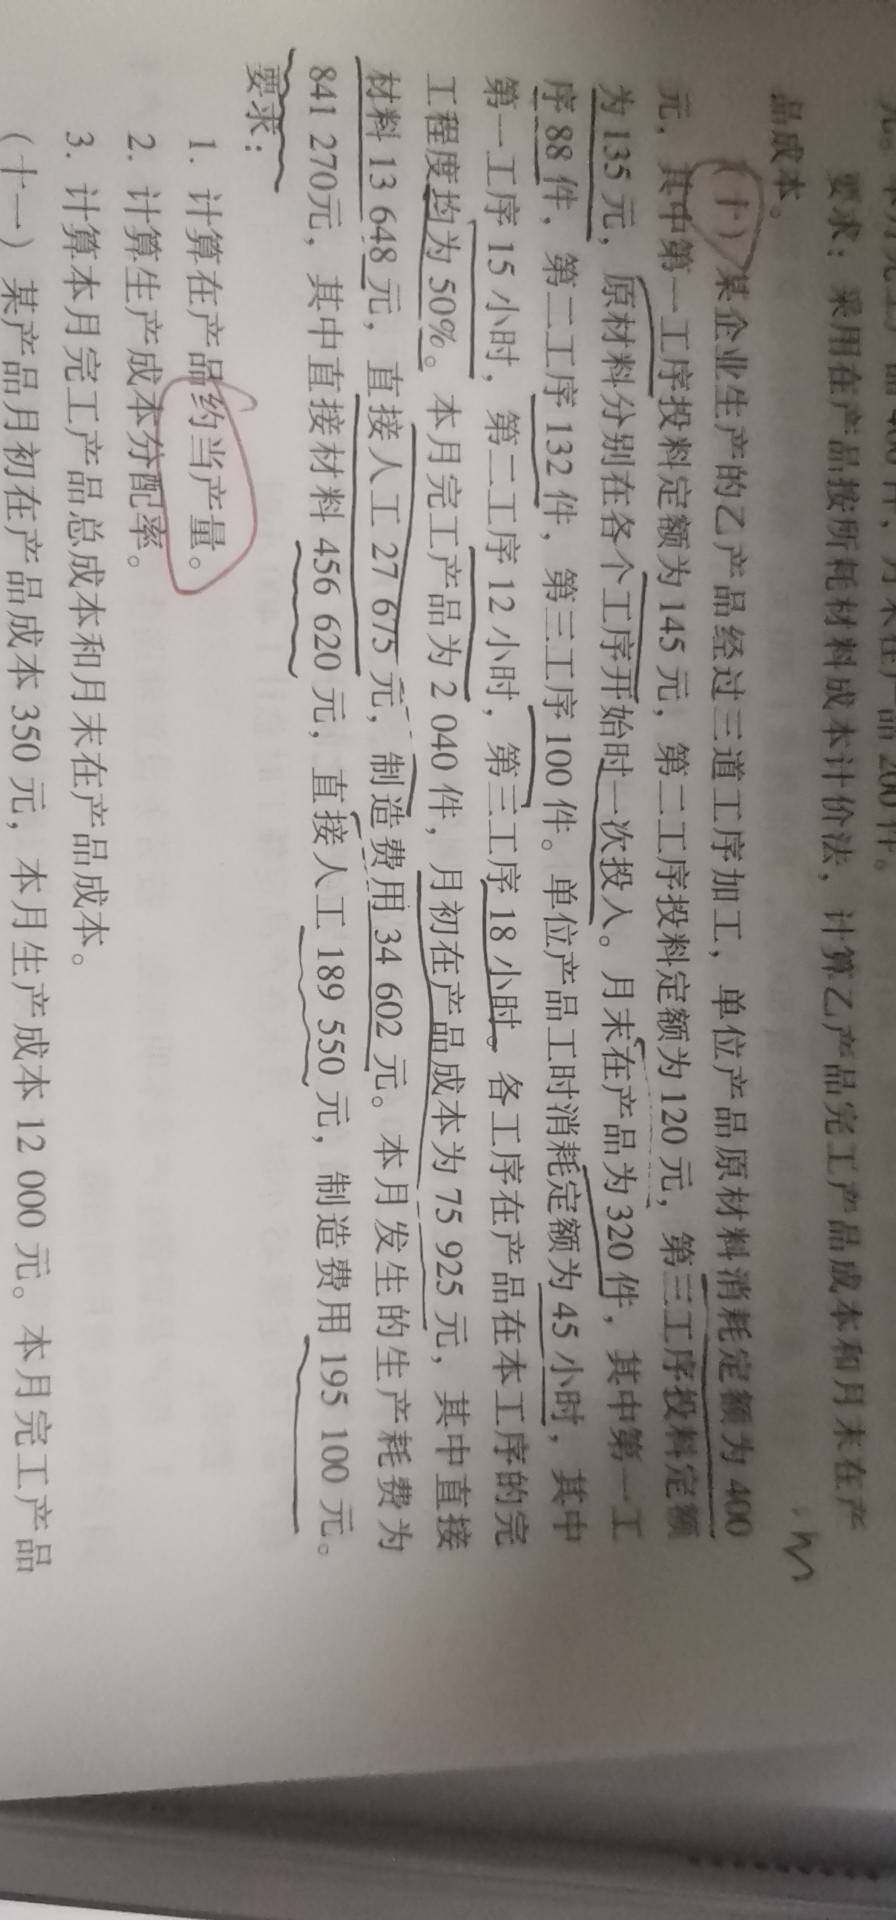 品 400 件，月末在产品 200 件。
要求：采用在产品按所耗材料成本计价法，计算乙产品完工产品成本和月末在产
品成本。
（十）某企业生产的乙产品经过三道工序加工，单位产品原材料消耗定额为 400
元，其中第一工序投料定额为 145 元，第二工序投料定额为 120 元，第三工序投料定额
为 135 元，原材料分别在各个工序开始时一次投入。月末在产品为 320 件，其中第一工
序 88 件，第二工序 132 件，第三工序 100 件。单位产品工时消耗定额为 45 小时，其中
第一工序 15 小时，第二工序 12 小时，第三工序 18 小时。各工序在产品在本工序的完
工程度均为 50%。本月完工产品为 2 040 件，月初在产品成本为 75 925 元，其中直接
材料 13 648 元，直接人工 27 675 元，制造费用 34 602 元。本月发生的生产耗费为
841 270元，其中直接材料 456 620 元，直接人工 189 550 元，制造费用 195 100 元。
要求：
1. 计算在产品约当产量。
2. 计算生产成本分配率。
3. 计算本月完工产品总成本和月末在产品成本。
（十一）某产品月初在产品成本 350 元，本月生产成本 12 000 元。本月完工产品